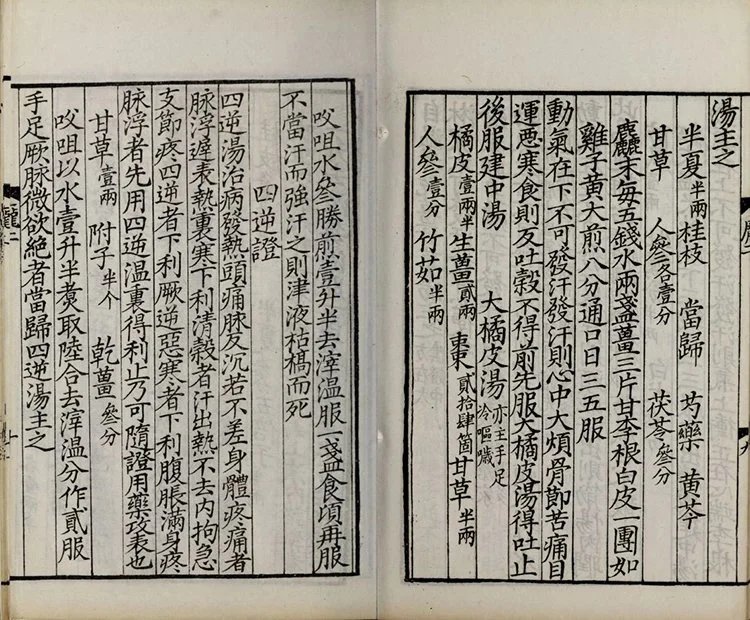 湯主之
半夏半兩 桂枝 當歸 芍藥 黃芩
甘草 人參各壹分 茯苓參分
麤末每五錢水兩盞薑三片甘李根白皮一團如
雞子黃大煎八分通口日三五服
動氣在下不可發汗發汗則心中大煩骨節苦痛目
運惡寒食則反吐穀不得前先服大橘皮湯得吐止
後服建中湯 大橘皮湯亦主手足冷嘔噦
橘皮壹兩半 生薑貳兩 棗貳拾肆箇 甘草半兩
人參壹分 竹茹半兩
㕮咀水參勝煎壹升半去滓溫服一盞食頃再服
不當汗而強汗之則津液枯槁而死
四逆證
四逆湯治病發熱頭痛脉反沉若不差身體疼痛者
脉浮遲表熱裏寒下利清穀者汗出熱不去内拘急
支節疼四逆者下利厥逆惡寒者下利腹脹滿身疼
脉浮者先用四逆溫裏得利止乃可隨證用藥攻表也
甘草壹兩 附子半个 乾薑參分
㕮咀以水壹升半煑取陸合去滓溫分作貳服
手足厥脉微欲絶者當歸四逆湯主之